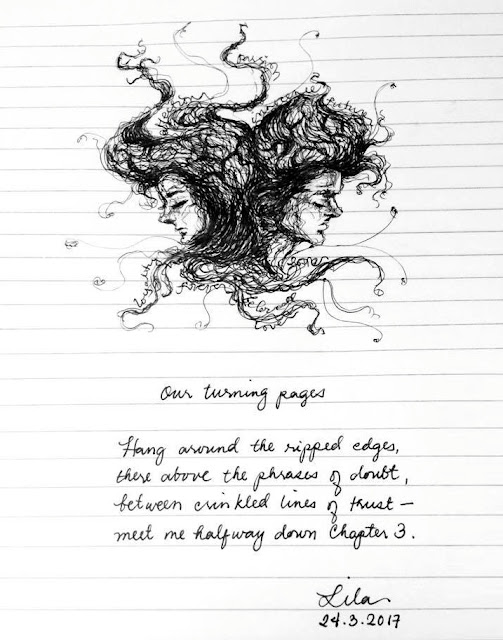 Our turning pages
Hang around the ripped edges,
there above the phrases of doubt,
between crinkled lines of trust –
meet me halfway down Chapter 3.
Lila
24.3.2017